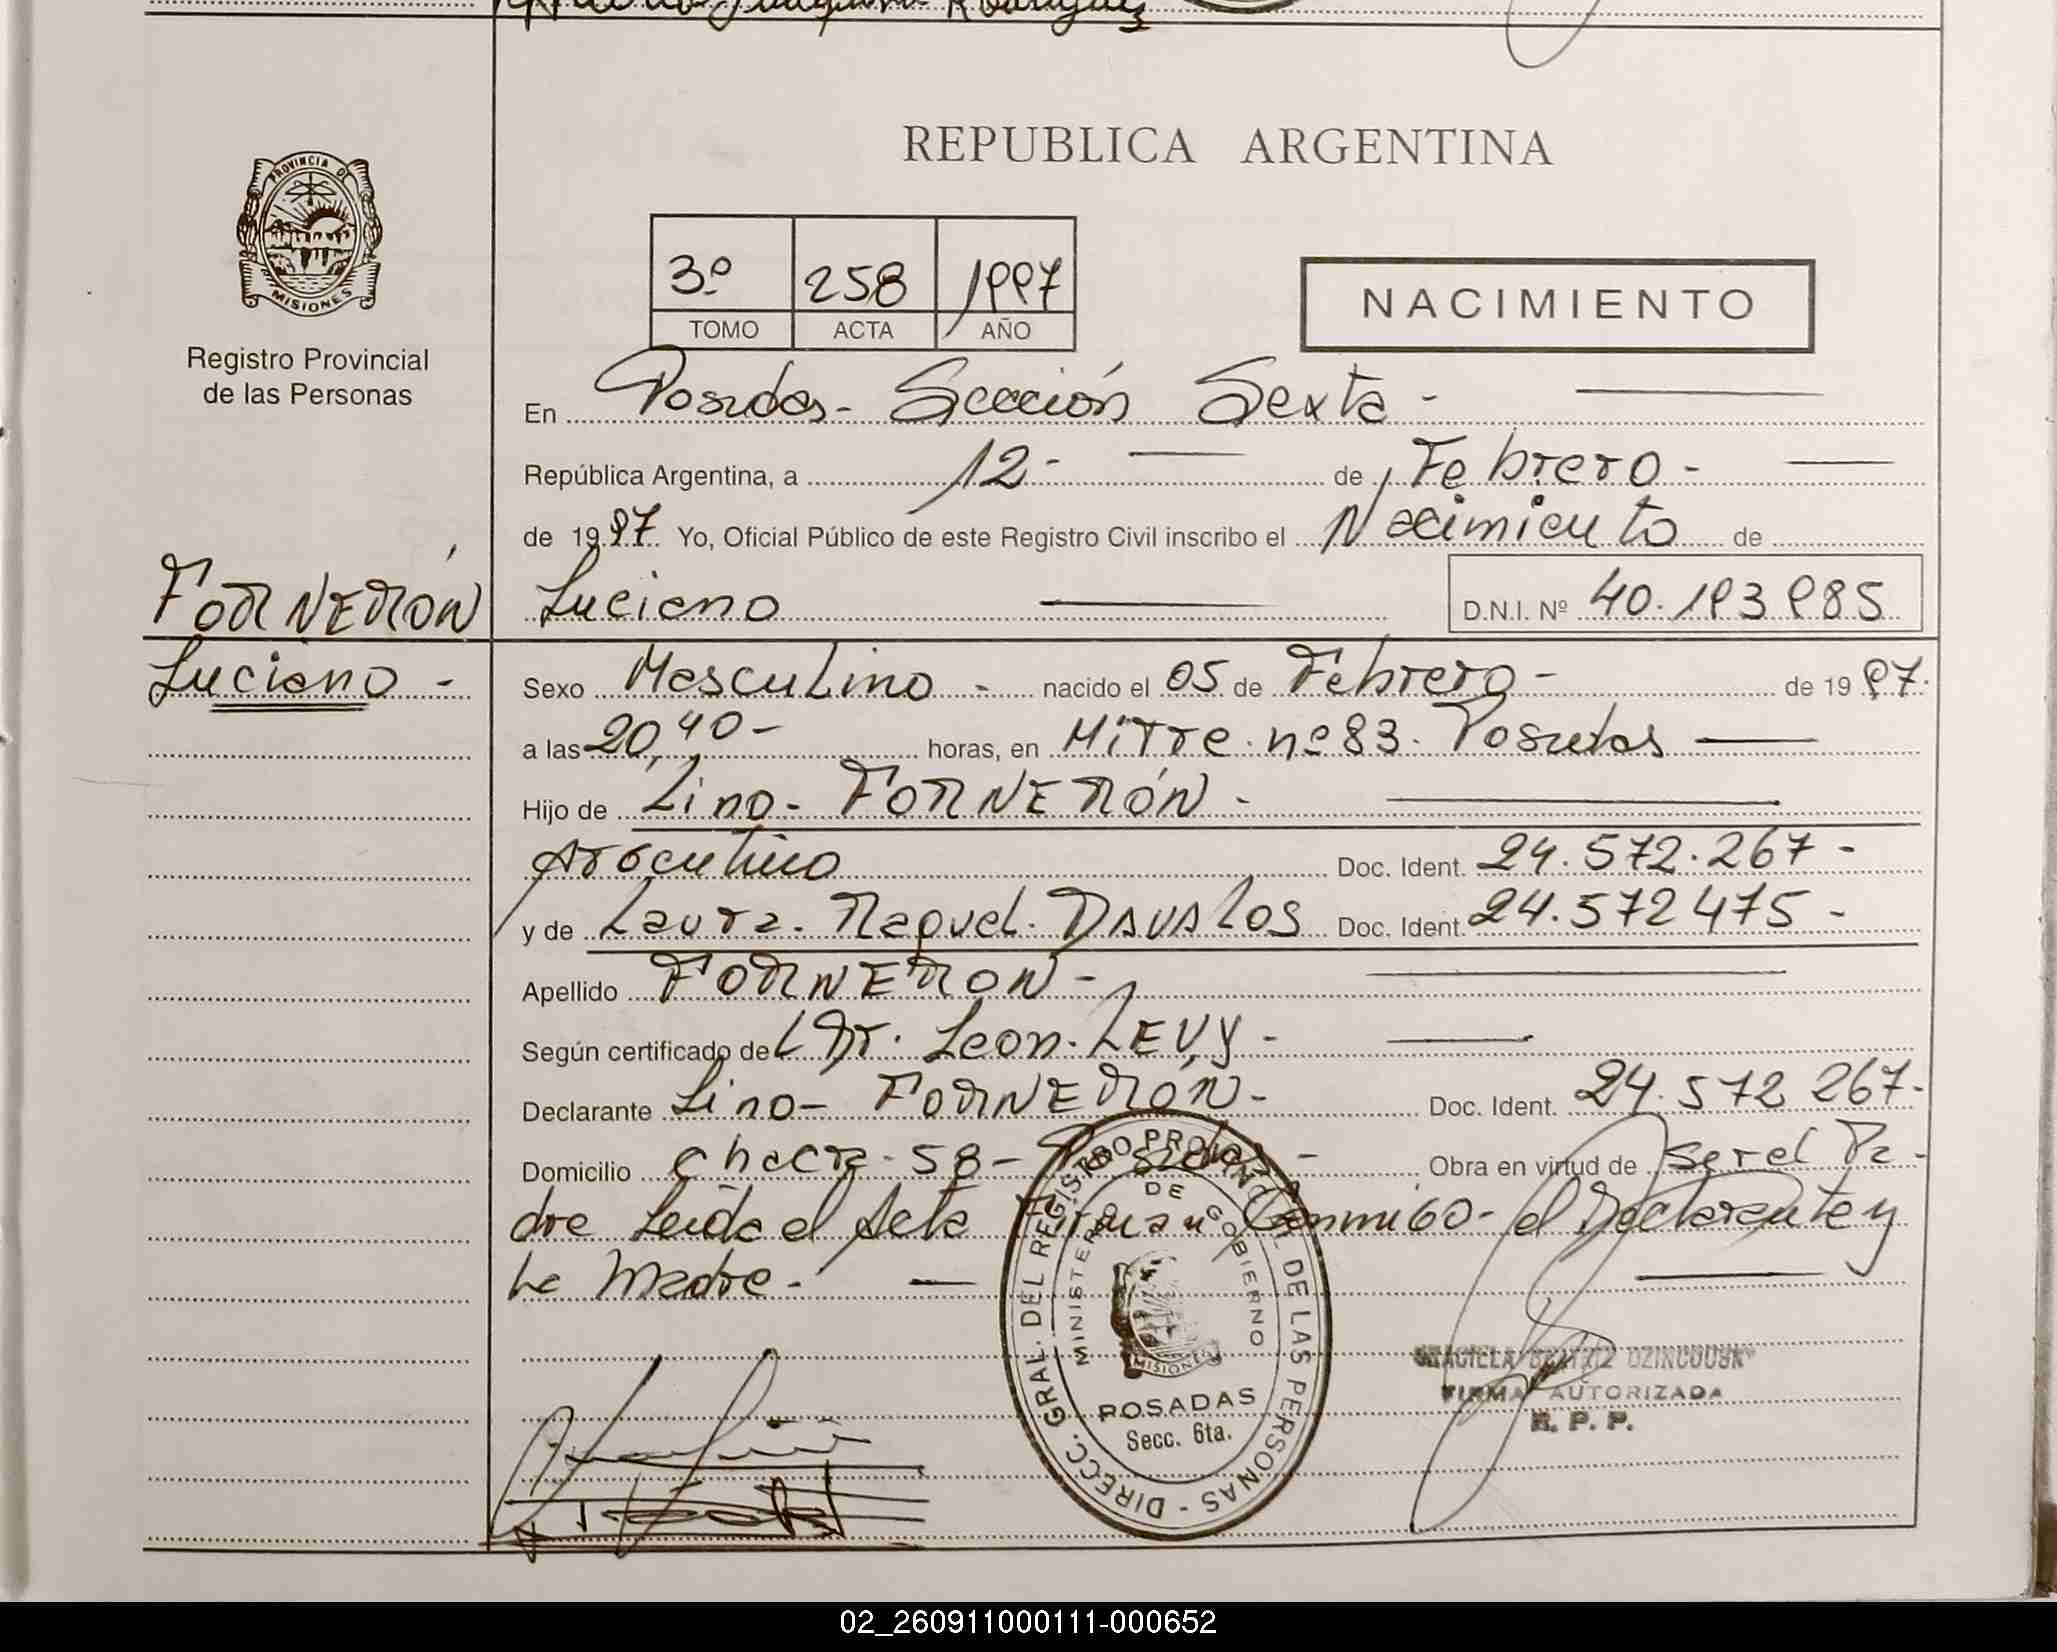 Joaquín Rodríguez
REPUBLICA ARGENTINA
PROVINCIA DE
MISIONES
Registro Provincial
de las Personas
3º 258 1997
TOMO ACTA AÑO
NACIMIENTO
En Posadas - Sección Sexta -
República Argentina, a 12 - de Febrero -
de 1997 Yo, Oficial Público de este Registro Civil inscribo el Nacimiento de
FORNERÓN Luciano D.N.I. Nº 40.193985
Luciano - Sexo Masculino - nacido el 05 de Febrero - de 1997.
a las 20,40 - horas, en Mitre nº 83. Posadas
Hijo de Lino - FORNERÓN -
Argentino Doc. Ident. 24.572.267 -
y de Laura. Raquel. DAVALOS Doc. Ident. 24.572475 -
Apellido FORNERON -
Según certificado del Dr. Leon. LEVY -
Declarante Lino - FORNERÓN - Doc. Ident. 24.572267-
Domicilio chacra - 58 - Posadas - Obra en virtud de ser el Pa-
dre Leida el Acta Firman Conmigo - el Declarante y
La Madre. -
DIRECC. GRAL. DEL REGISTRO PROVINCIAL DE LAS PERSONAS -
MINISTERIO DE GOBIERNO
MISIONES
POSADAS
Secc. 6ta.
BEATRIZ
FIRMA AUTORIZADA
R. P. P.
02_260911000111-000652